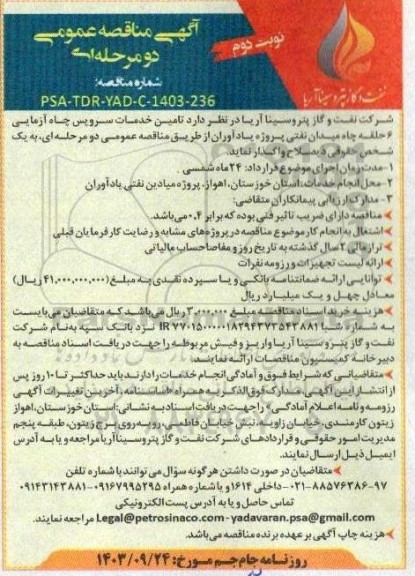 نوبت دوم
آگهی مناقصه عمومی
دو مرحله‌ای
شماره مناقصه:
PSA-TDR-YAD-C-1403-236
نفت و گاز پتروسینا آریا
شرکت نفت و گاز پتروسینا آریا در نظر دارد تامین خدمات سرویس چاه آزمایی
۶ حلقه چاه میدان نفتی پروژه یادآوران از طریق مناقصه عمومی دو مرحله ای، به یک
شخص حقوقی ذیصلاح واگذار نماید.
۱- مدت زمان اجرای موضوع قرارداد: ۲۴ ماه شمسی.
۲- محل انجام خدمات: استان خوزستان، اهواز، پروژه میادین نفتی یادآوران
۳- مدارک ارزیابی پیمانکاران متقاضی:
مناقصه دارای ضریب تاثیر فنی بوده که برابر ۰.۴ می‌باشد.
اشتغال به انجام کار موضوع مناقصه در پروژه های مشابه و رضایت کارفرمایان قبلی
تراز مالی ۲ سال گذشته به تاریخ روز و مفاصا حساب مالیاتی
ارائه لیست تجهیزات و رزومه نفرات
توانایی ارائه ضمانتنامه بانکی و یا سپرده نقدی به مبلغ (۴۱,۰۰۰,۰۰۰,۰۰۰ ریال)
معادل چهل و یک میلیارد ریال
هزینه خرید اسناد مناقصه مبلغ ۳,۰۰۰,۰۰۰ ریال می‌باشد که متقاضیان می‌بایست
به شماره شبا نزد بانک سپه به نام شرکت
نفت و گاز پتروسینا آریا واریز و فیش مربوطه را جهت دریافت اسناد مناقصه به
دبیرخانه کمیسیون مناقصات ارائه نمایند.
متقاضیانی که شرایط فوق و آمادگی انجام خدمات را دارند باید حداکثر تا ۱۰ روز پس
از انتشار این آگهی، مدارک فوق الذکر به همراه «اساسنامه، آخرین تغییرات آگهی
رزومه و نامه اعلام آمادگی» را جهت دریافت اسناد به نشانی: استان خوزستان، اهواز
زیتون کارمندی، خیابان زاویه، نبش خیابان فاطمی، روبه روی برج زیتون، طبقه پنجم
مدیریت امور حقوقی و قراردادهای شرکت نفت و گاز پتروسینا آریا مراجعه و یا به آدرس
ایمیل ذیل ارسال نمایند.
متقاضیان در صورت داشتن هرگونه سوال می توانند با شماره تلفن
۰۲۱-۸۸۵۷۶۳۸۶-۹۷ داخلی ۱۶۱۴ و یا شماره همراه ۰۹۱۶۷۹۹۵۲۹۵-۰۹۱۴۳۱۴۳۸۸۱
تماس حاصل و یا به آدرس پست الکترونیکی
Legal@petrosinaco.com - yadavaran.psa@gmail.com مراجعه نمایند.
هزینه چاپ آگهی بر عهده برنده مناقصه می‌باشد.
روزنامه جام جم مورخ: ۱۴۰۳/۰۹/۲۴